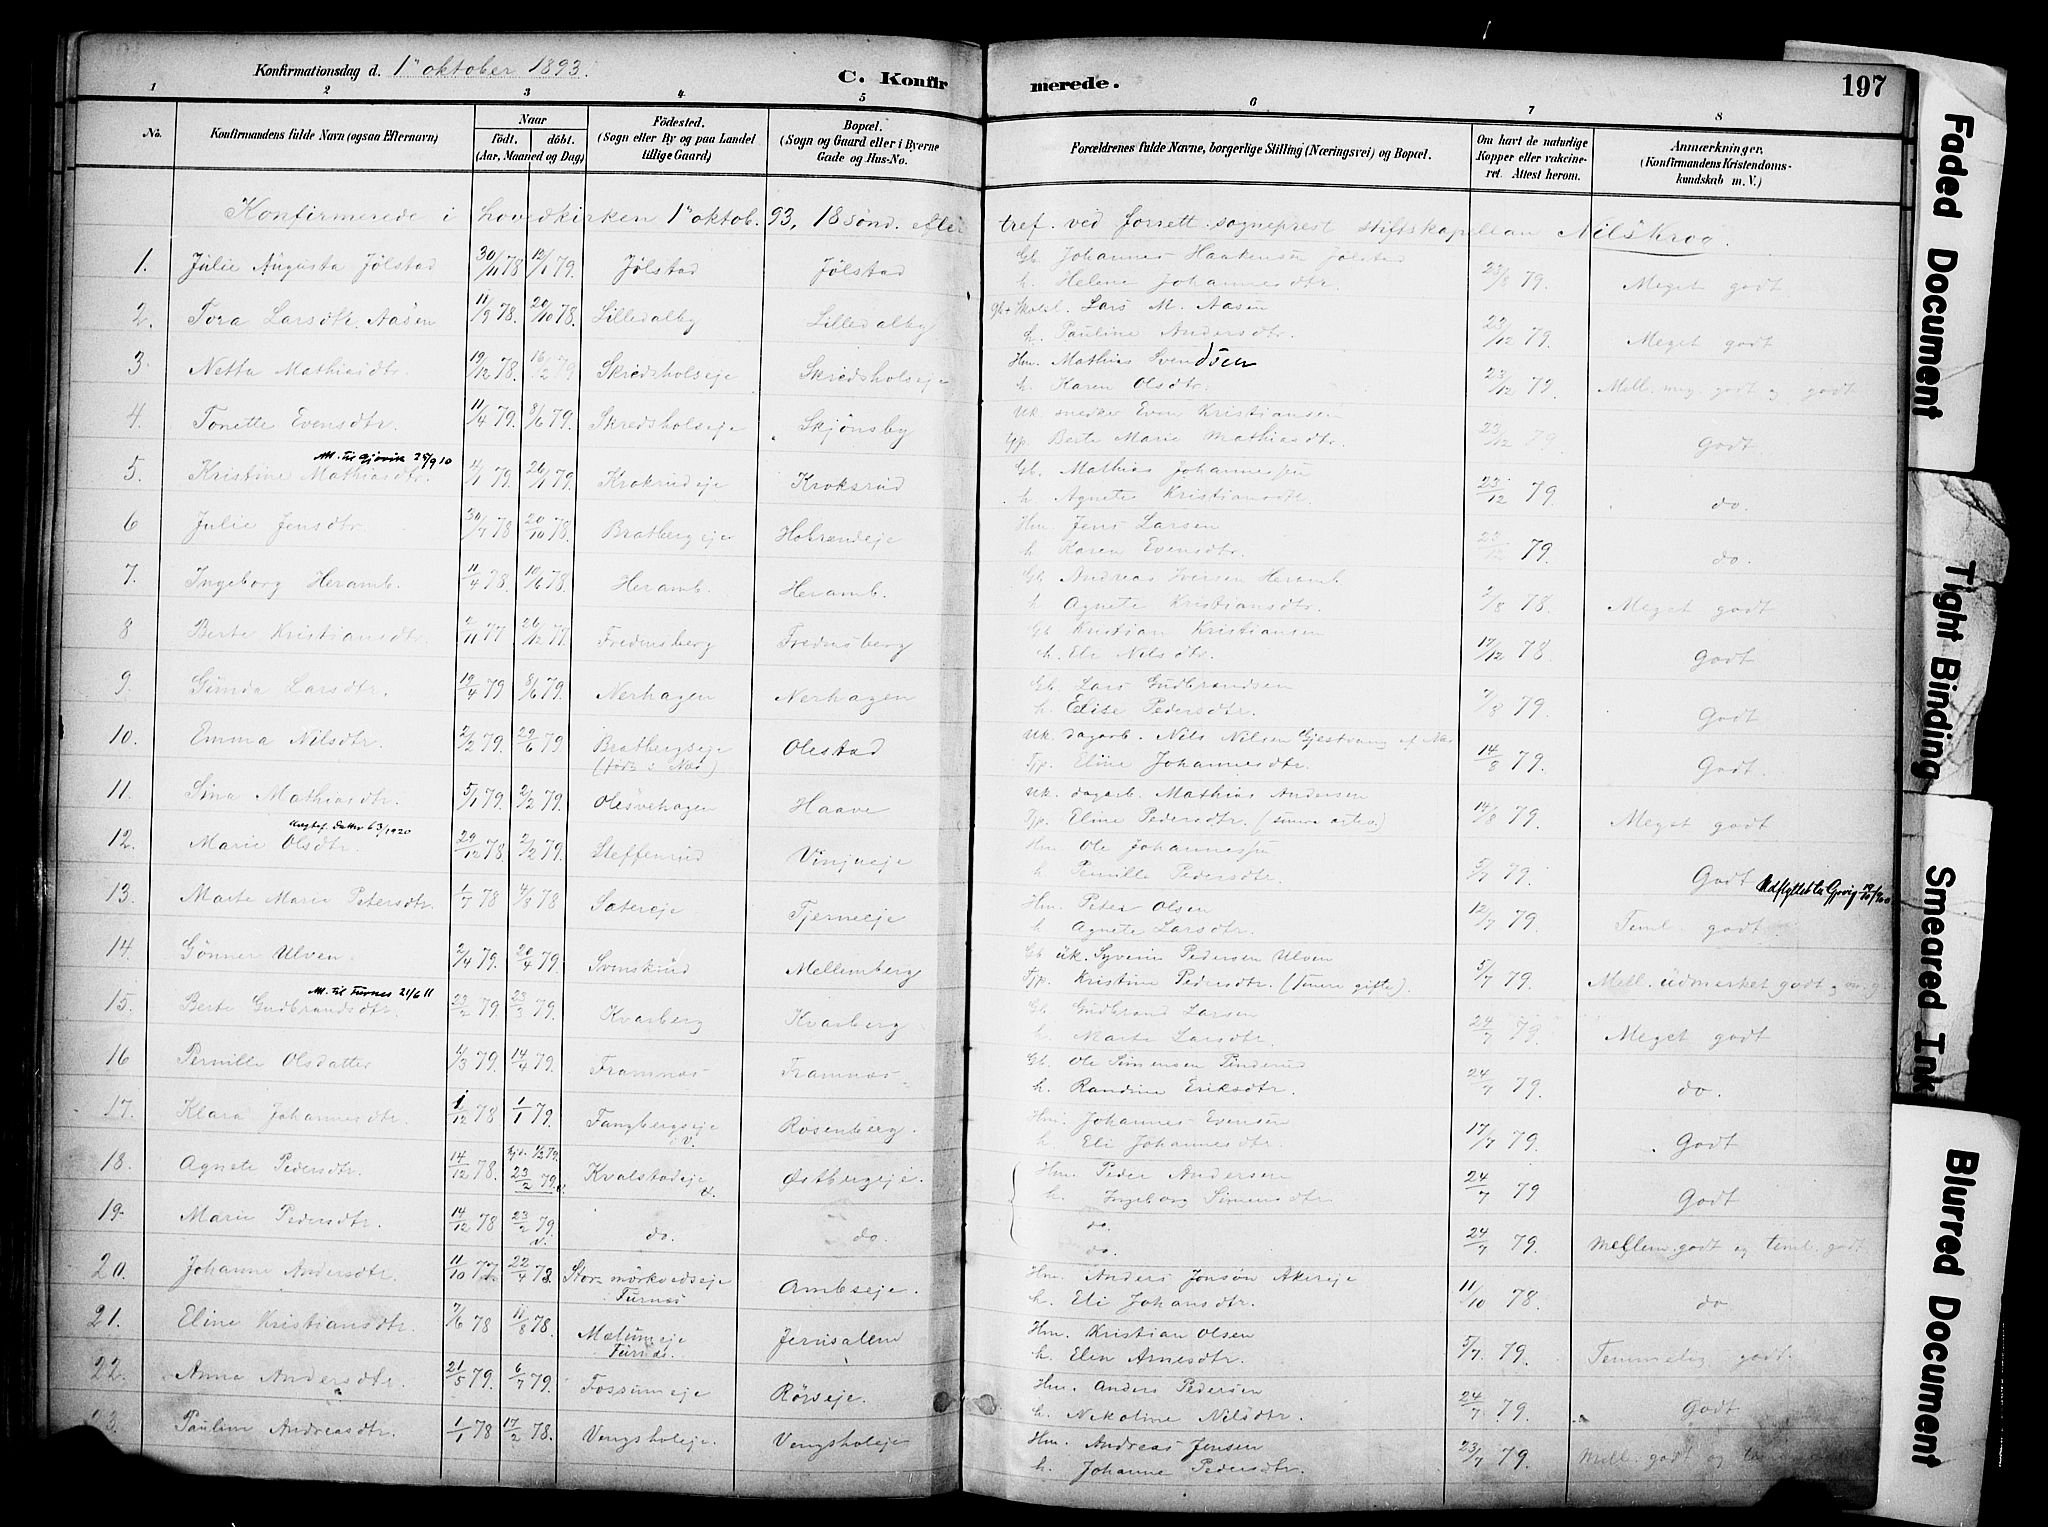 Konfirmationsdag d. 1ste oktober 1893.
C. Konfirmerede.
197
1 2 3 4 5 6 7 8
No.
Konfirmandens fulde Navn (ogsaa Efternavn)
Naar
födt. döbt.
(Aar, Maaned og Dag)
Födested.
(Sogn eller By og paa Landet tillige Gaard)
Bopæl.
(Sogn og Gaard eller i Byerne Gade og Hus-No.
Forældrenes fulde Navne, borgerlige Stilling (Næringsvei) og Bopæl.
Om havt de naturlige Kopper eller vakcineret. Attest herom.
Anmærkninger.
(Konfirmandens Kristendomskundskab m. V.)
Konfirmerede i hovedkirken 1ste oktob. 93, 18 sönd. efter tref. ved forrett. sogneprest stiftskapellan Nils Krog.
1. Julie Augusta Jølstad 30/11 78 12/1 79. Jølstad Jølstad Gb. Johannes Haakensen Jølstad
h. Helene Johannesdtr. 23/8 79. Meget godt
2. Tora Larsdtr. Aasen 11/9 78. 20/10 78. Lilledalby Lilledalby Lars M. Aasen
h. Pauline Andersdtr. 23/12 79. Meget godt
3. Netta Mathiasdtr. 19/12 78. 16/2 79 Skredsholseje Skredsholseje Hm. Mathias Svendsen
h. Karen Olsdtr. 23/12 79. Mell. meg. godt og godt
4. Tonette Evensdtr. 11/4 79. 8/6 79. Skredsholseje Skjönsby Uk. snedker Even Kristiansen
Tjp. Berte Marie Mathiasdtr. 23/12 79 Godt.
M. til Gjøvik 25/9 10
5 Kristine Mathiasdtr. 4/1 79. 26/1 79. Kroksrudeje Kroksrud Gb. Mathias Johannessen
h. Agnete Kristiansdtr. 23/12 79 do.
6 Julie Jensdtr. 30/7 78 20/10 78. Bratbergeje Hobrændeje Hm. Jens Larsen
h. Karen Evensdtr. 79. do.
7. Ingeborg Heramb. 11/4 78. 10/6 78. Heramb. Heramb. Gb. Andreas Iversen Heramb
h. Agnete Kristiansdtr. 2/8 78. Meget godt
8 Berte Kristiansdtr. 2/11 77 26/12 77. Fredensberg Fredensberg Gb. Kristian Kristiansen
h. Eli Nilsdtr. 17/12 78. Godt
9 Gunda Larsdtr. 19/4 79 8/6 79. Nerhagen Nerhagen Gb. Lars Gudbrandsen
h. Elise Pedersdtr. 7/8 79. Godt
10. Emma Nilsdtr. 2/2 79. 29/6 79 Bratbergseje Olestad Uk. dagarb. Nils Nilsen Gjestvang af Næs
(født i Næs) Tjp. Eline Johannesdtr. 14/8 79. Godt
11. Sina Mathiasdtr. 5/1 79. 2/2 79. Olsvehagen Haave Uk. dagarb. Mathias Andersen
Tjp. Eline Pedersdtr. 14/8 79. Meget godt
datter 6 3/1920
12. Marie Olsdtr. 29/12 78. 2/2 79. Steffenrud Vinjueje Hm. Ole Johannessen
h. Pernille Pedersdtr. 5/7 79. Godt
Udflyttet til Gjøvig
13. Marte Marie Petersdtr. 1/7 78 4/8 78 Sætereje Tjerneeje Hm. Peter Olsen
h. Agnete Larsdtr. 12/7 79 Teml. godt.
14. Gönner Ulven 2/4 79. 20/4 79. Svenskrud Mellumberg Gb. uk. Syverin Pedersen Ulven
Tjp. Kristine Pedersdtr. (senere gifte). 5/7 79. Mell. udmerket godt og m. g.
M. til Furnes 21/6 11
15. Berte Gudbrandsdtr. 22/2 79. 23/3 79. Kvarberg Kvarberg Gb. Gudbrand Larsen
h. Marte Larsdtr. 24/7 79. Meget godt
16 Pernille Olsdatter 6/3 79. 14/4 79. Framnæs Framnæs Gb. Ole Simensen Pinderud
h. Randine Eriksdtr. 24/7 79. do.
17. Klara Johannesdtr. 1/12 78 1/1 79. Fangbergseje v. Rosenberg. Hm. Johannes Evensen
h. Eli Johannesdtr. 17/7 79. Godt
18. Agnete Pedersdtr. 14/12 78. 23/2 79. Kvalstadeje Østbergeje. Hm. Peder Andersen
h. Ingeborg Simensdtr 24/7 79 Godt
19. Marie Pedersdtr. 14/12 78 23/2 79. do. do. do.
do. 24/7 79. mellem godt og teml. godt
20. Johanne Andersdtr. 11/10 77. 22/4 78. Stor-mörkvedseje Ambseje. Hm. Anders Jonsön Akereje
Furnæs h. Eli Johansdtr. 11/10 78. do
21. Eline Kristiansdtr. 7/6 78 11/8 78. Mælumeje Jerusalem Hm. Kristian Olsen
Furnæs. h. Elen Arnesdtr. 5/7 79. Temmelig godt
22. Anna Andersdtr. 21/5 79. 6/7 79. Fossumeje Rörseje. Hm. Anders Pedersen
h. Nikoline Nilsdtr. 24/7 79. Godt
23. Pauline Andreasdtr. 1/1 78 17/2 78. Vengsholeje. Vengsholeje Hm. Andreas Jensen
h. Johanne Pedersdtr. 23/7 79. Mell. godt og
Faded Document
Tight Binding
Smeared Ink
Blurred Document